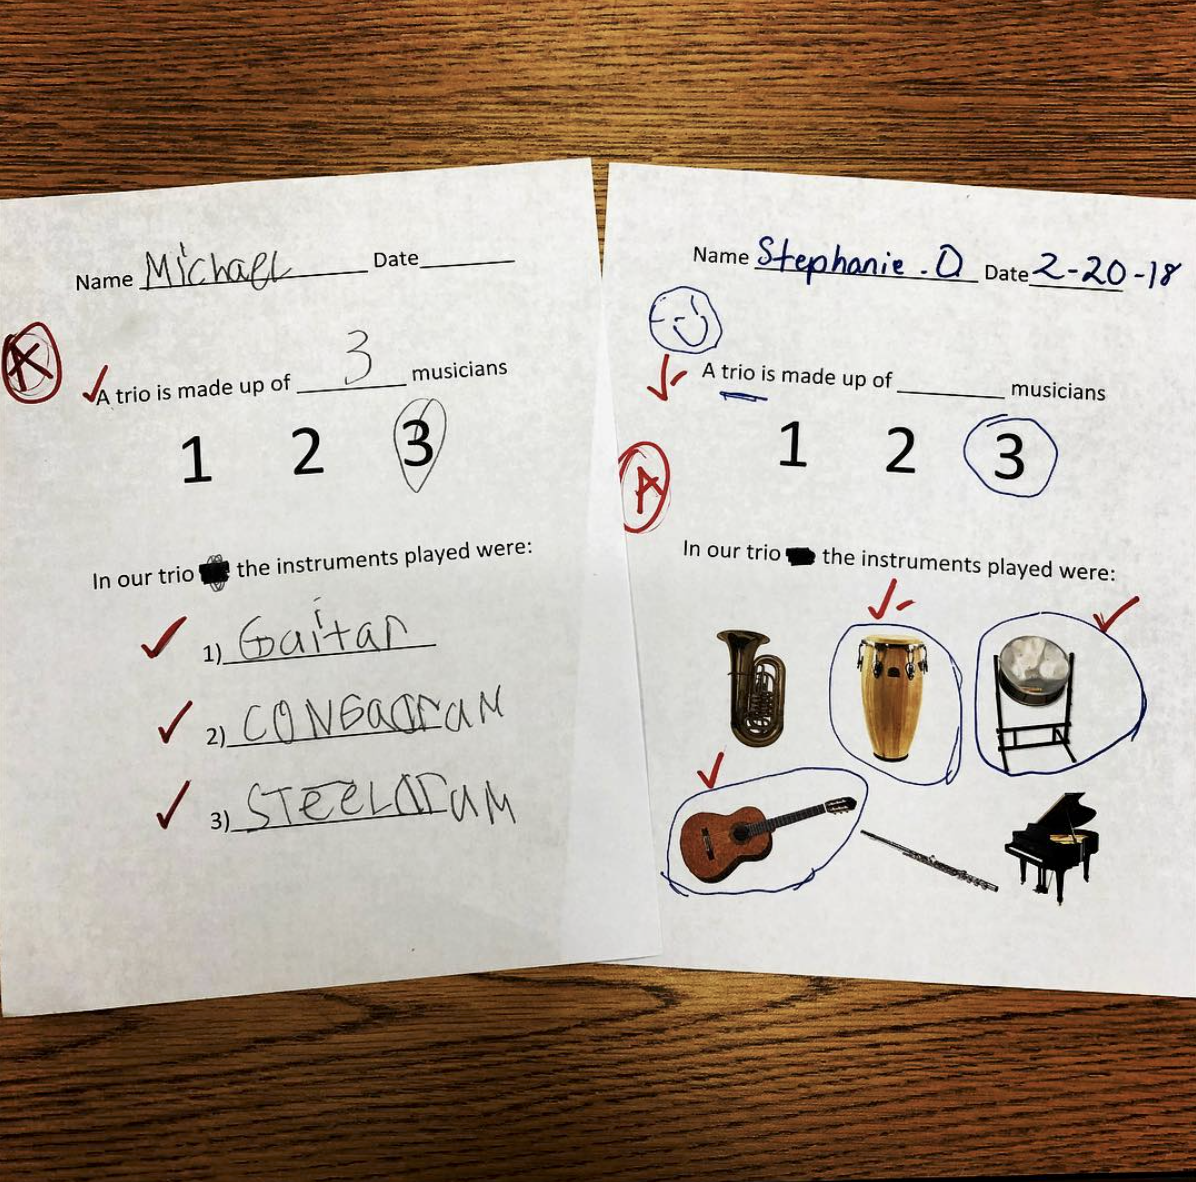 Name Michael Date
A
A trio is made up of 3 musicians
1 2 3
In our trio the instruments played were:
1) Gaitar
2) CONGADrUM
3) STeeLDrUM
Name Stephanie.D Date 2-20-18
A trio is made up of musicians
1 2 3
A
In our trio the instruments played were: